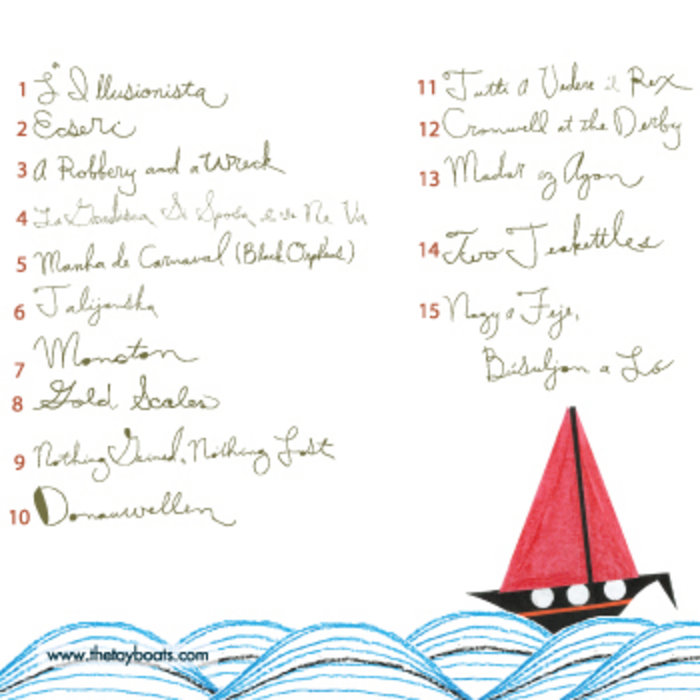 1 L'Illusionista
2 Ecseri
3 A Robbery and a Wreck
4 La Gondola, Si Sposa e se Ne Va
5 Manha de Carnaval (Black Orpheus)
6 Talijanska
7 Monoton
8 Gold Scales
9 Nothing Gained, Nothing Lost
10 Donauwellen
11 Tutti a Vedere il Rex
12 Cromwell at the Derby
13 Madar az Agon
14 Two Teakettles
15 Nagy a Feje,
Búsuljon a Ló
www.thetoyboats.com